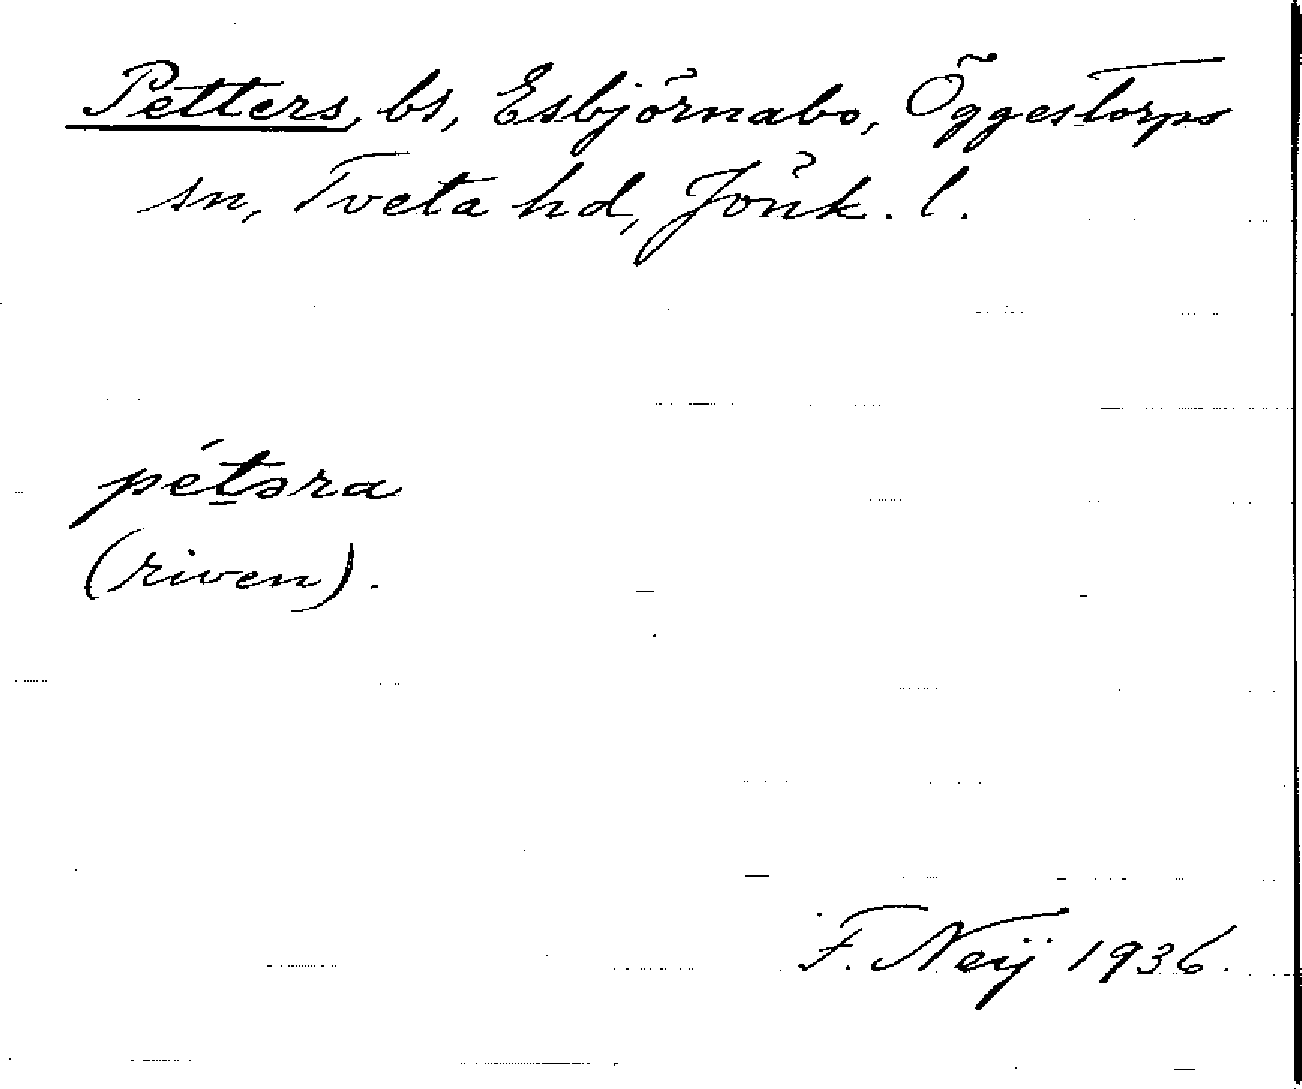 Petters, bs, Esbjörnabo, Öggestorps
sn, Tveta hd, Jönk. l.
pét̠əra
(riven).
F. Neij 1936.